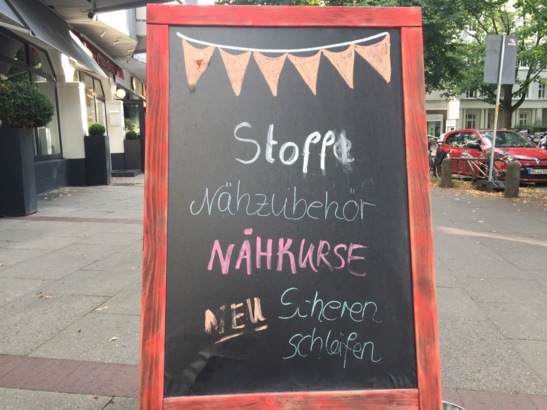 Stoffe
Nähzubehör
NÄHKURSE
NEU Scheren
schleifen